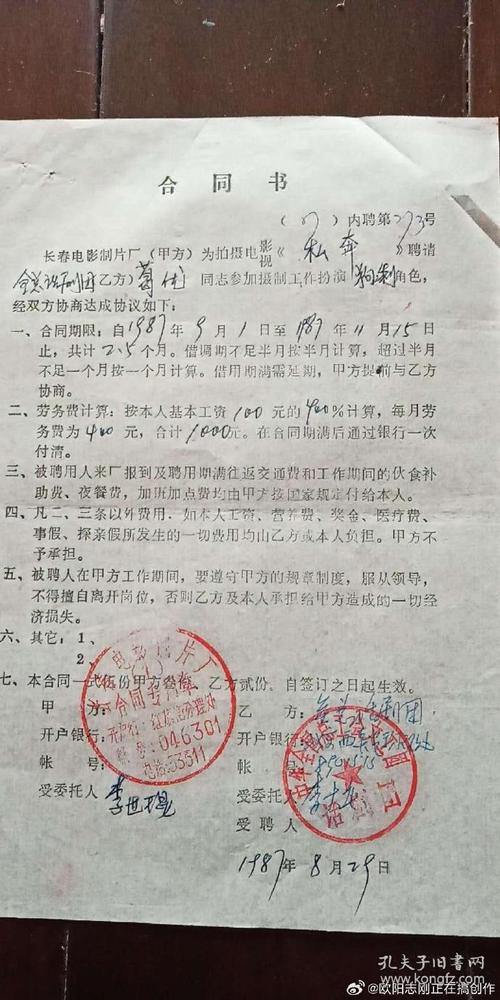 合同书
(87)内聘第273号
长春电影制片厂(甲方)为拍摄电影视《私奔》聘请
全总话剧团(乙方)葛优同志参加摄制工作扮演狗剩角色,
经双方协商达成协议如下:
一、合同期限:自1987年9月1日至1987年11月15日
止,共计2.5个月。借调期不足半月按半月计算,超过半月
不足一个月按一个月计算。借用期满需延期,甲方提前与乙方
协商。
二、劳务费计算:按本人基本工资100元的400%计算,每月劳
务费为400元,合计1000元。在合同期满后通过银行一次
付清。
三、被聘用人来厂报到及聘用期满往返交通费和工作期间的伙食补
助费、夜餐费,加班加点费均由甲方按国家规定付给本人。
四、凡二、三条以外费用,如本人工资、营养费、奖金、医疗费、
事假、探亲假所发生的一切费用均由乙方或本人负担。甲方不
予承担。
五、被聘人在甲方工作期间,要遵守甲方的规章制度,服从领导,
不得擅自离开岗位,否则乙方及本人承担给甲方造成的一切经
济损失。
六、其它:1、
2、
七、本合同一式伍份甲方叁份,乙方贰份,自签订之日起生效。
甲方:
乙方:全总话剧团
开户银行:
开户银行:
帐号:
帐号:
受委托人
受委托人
李世
受聘人
电影制片厂
合同专用章
046301
电话:53511
话剧团
1987年8月29日
孔夫子旧书网
@欧阳志刚正在搞创作